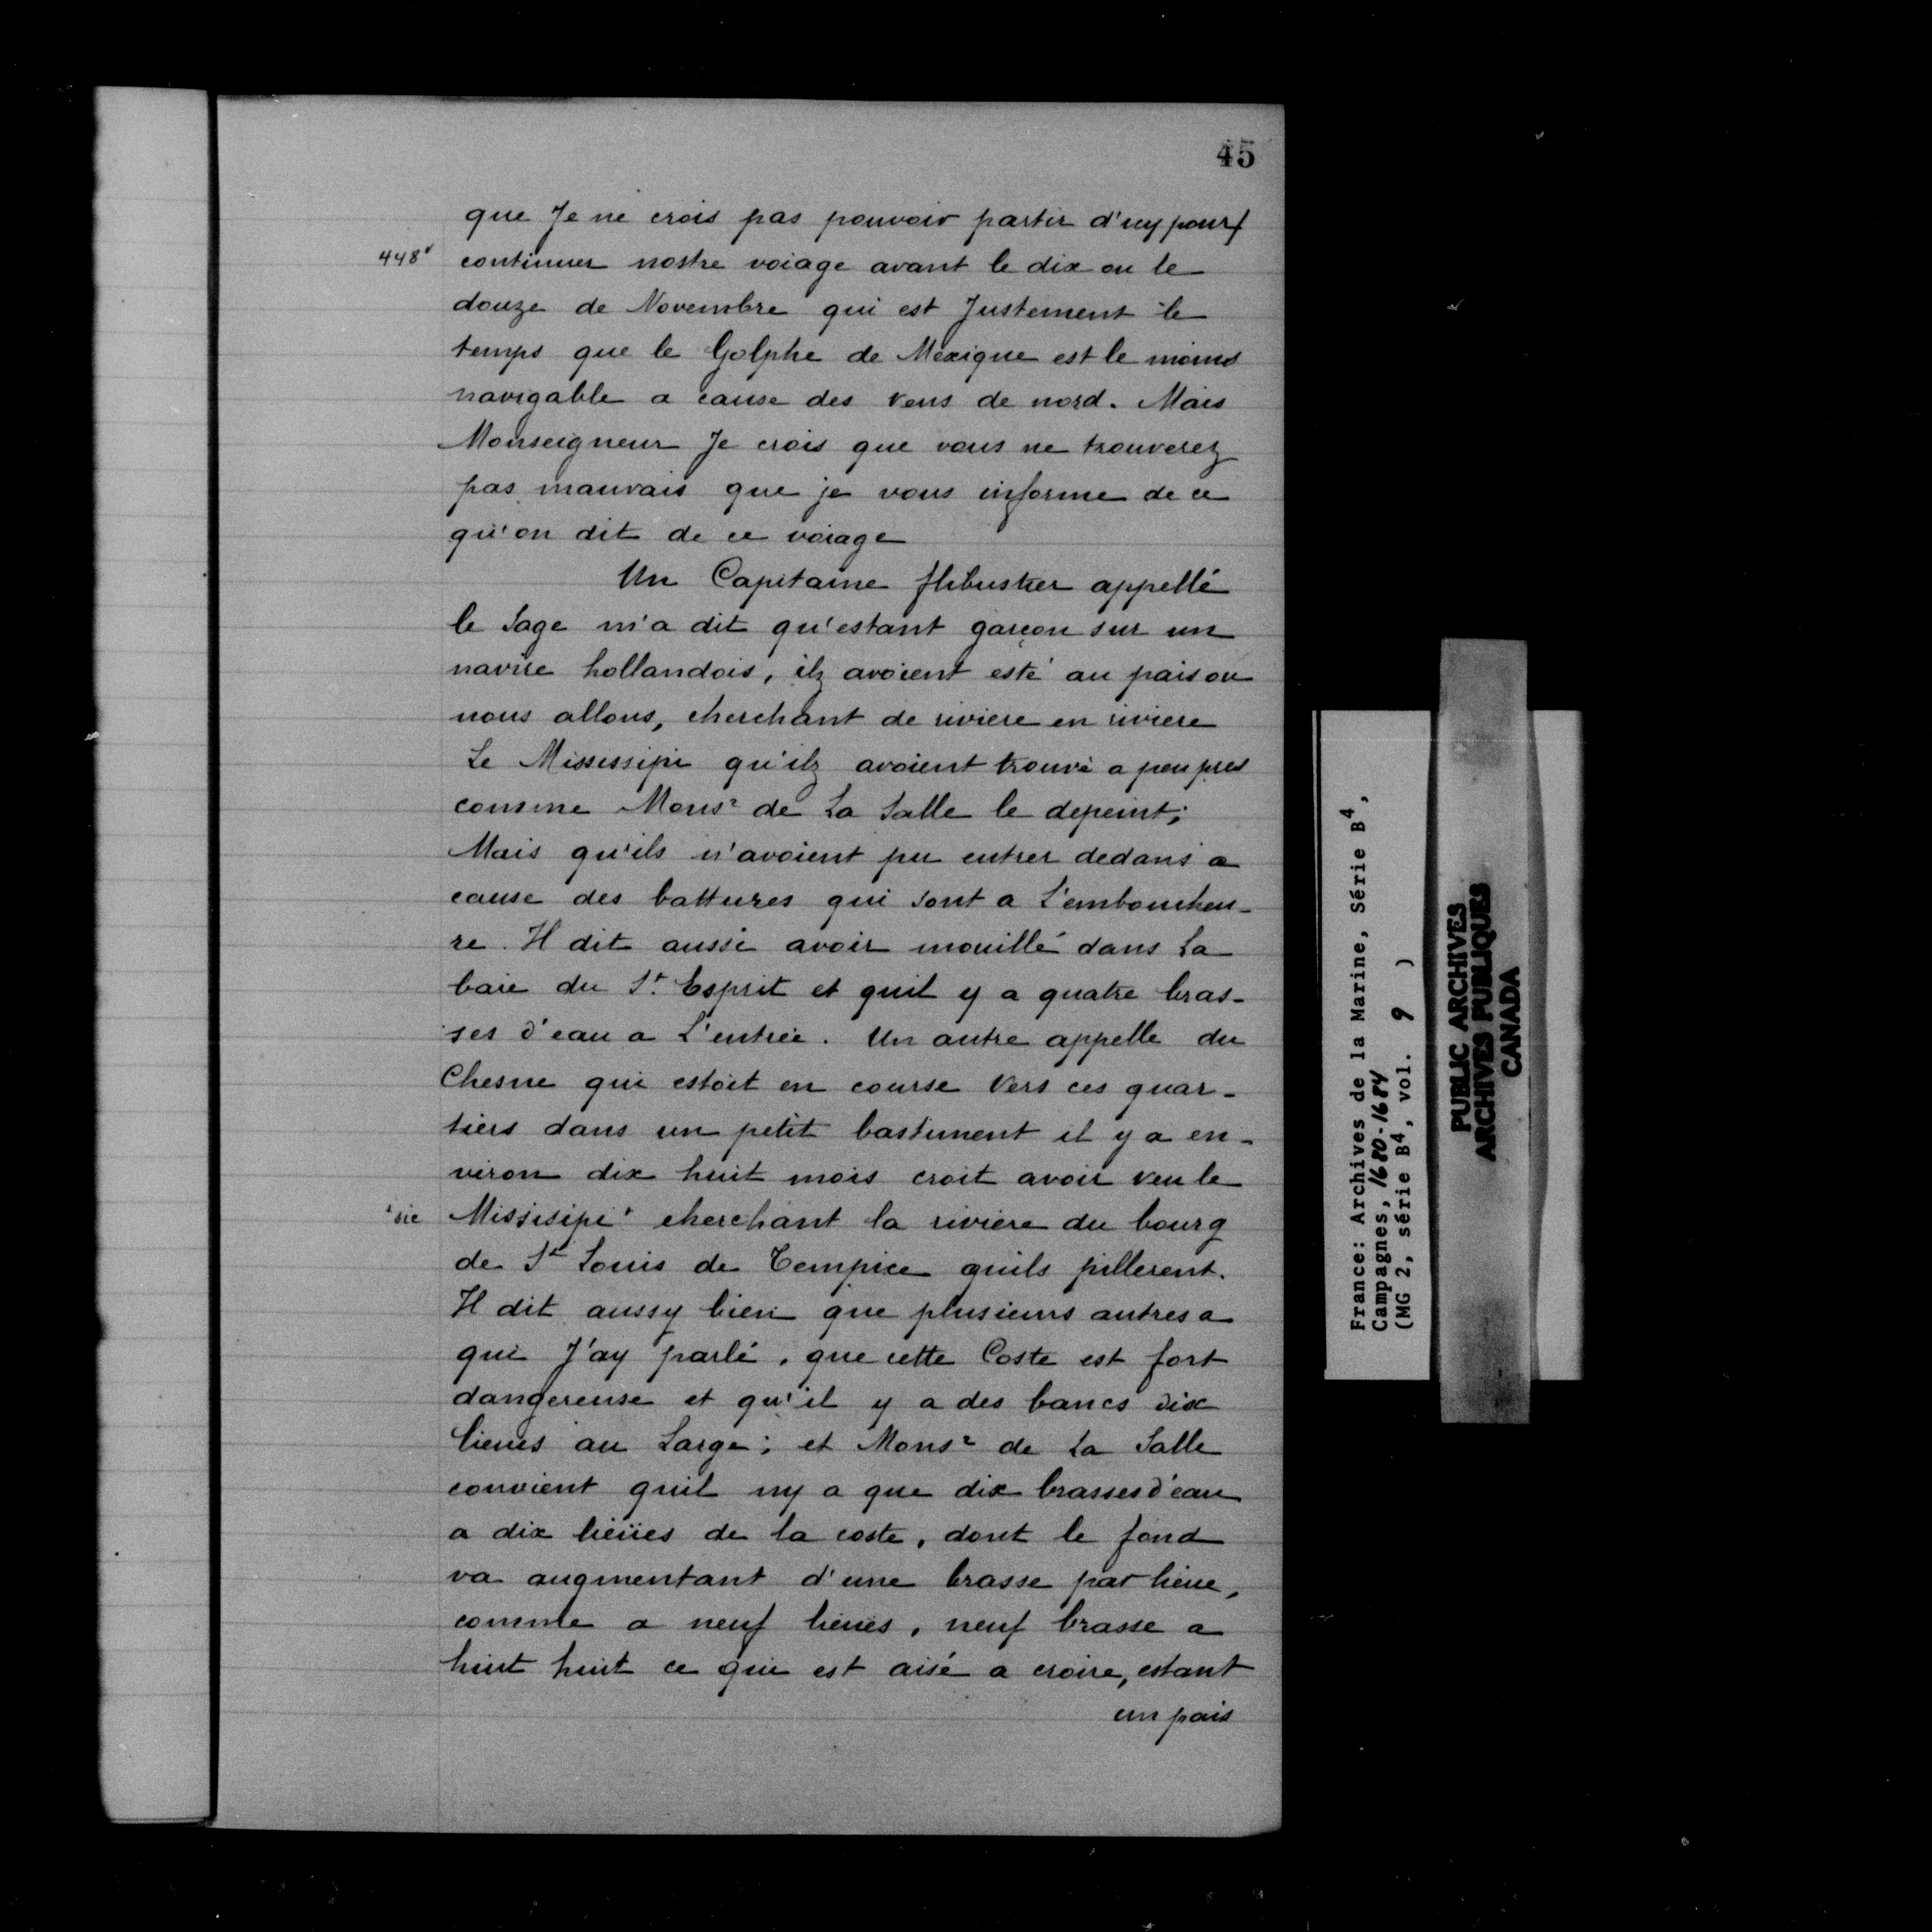 45
que Je ne crois pas pouvoir partir d'icy pour/
448v continuer nostre voiage avant le dix ou le
douze de Novembre qui est Justement le
temps que le Golphe de Mexique est le moins
navigable a cause des vens de nord. Mais
Monseigneur Je crois que vous ne trouverez
pas mauvais que je vous informe de ce
qu'on dit de ce voiage
Un Capitaine flibustier appellé
le Sage m'a dit qu'estant garçon sur un
navire hollandois, ilz avoient esté au pais ou
nous allons, cherchant de riviere en riviere
Le Mississipi qu'ilz avoient trouvé a peu pres
comme Monsr de La Salle le depeint;
Mais qu'ils n'avoient pu entrer dedans a
cause des battures qui sont a L'emboucheu-
re. Il dit aussi avoir mouillé dans La
baie du St. Esprit et quil y a quatre bras-
ses d'eau a L'entrée. Un autre appelle du
Chesne qui estoit en course vers ces quar-
tiers dans un petit bastiment il y a en-
viron dix huit mois croit avoir veu le
+sic Missisipi+ cherchant la riviere du bourg
de St Louis de Tempice quils pillerent.
Il dit aussy bien que plusieurs autres a
qui J'ay parlé, que cette Coste est fort
dangereuse et qu'il y a des bancs dix
lieues au Large; et Monsr de La Salle
convient quil ny a que dix brasses d'eau
a dix lieües de la coste, dont le fond
va augmentant d'une brasse par lieue,
comme a neuf lieues, neuf brasse a
huit huit ce qui est aisé a croire, estant
un pais
France: Archives de la Marine, Série B4,
Campagnes, 1680-1684
(MG 2, série B4, vol. 9 )
PUBLIC ARCHIVES
ARCHIVES PUBLIQUES
CANADA